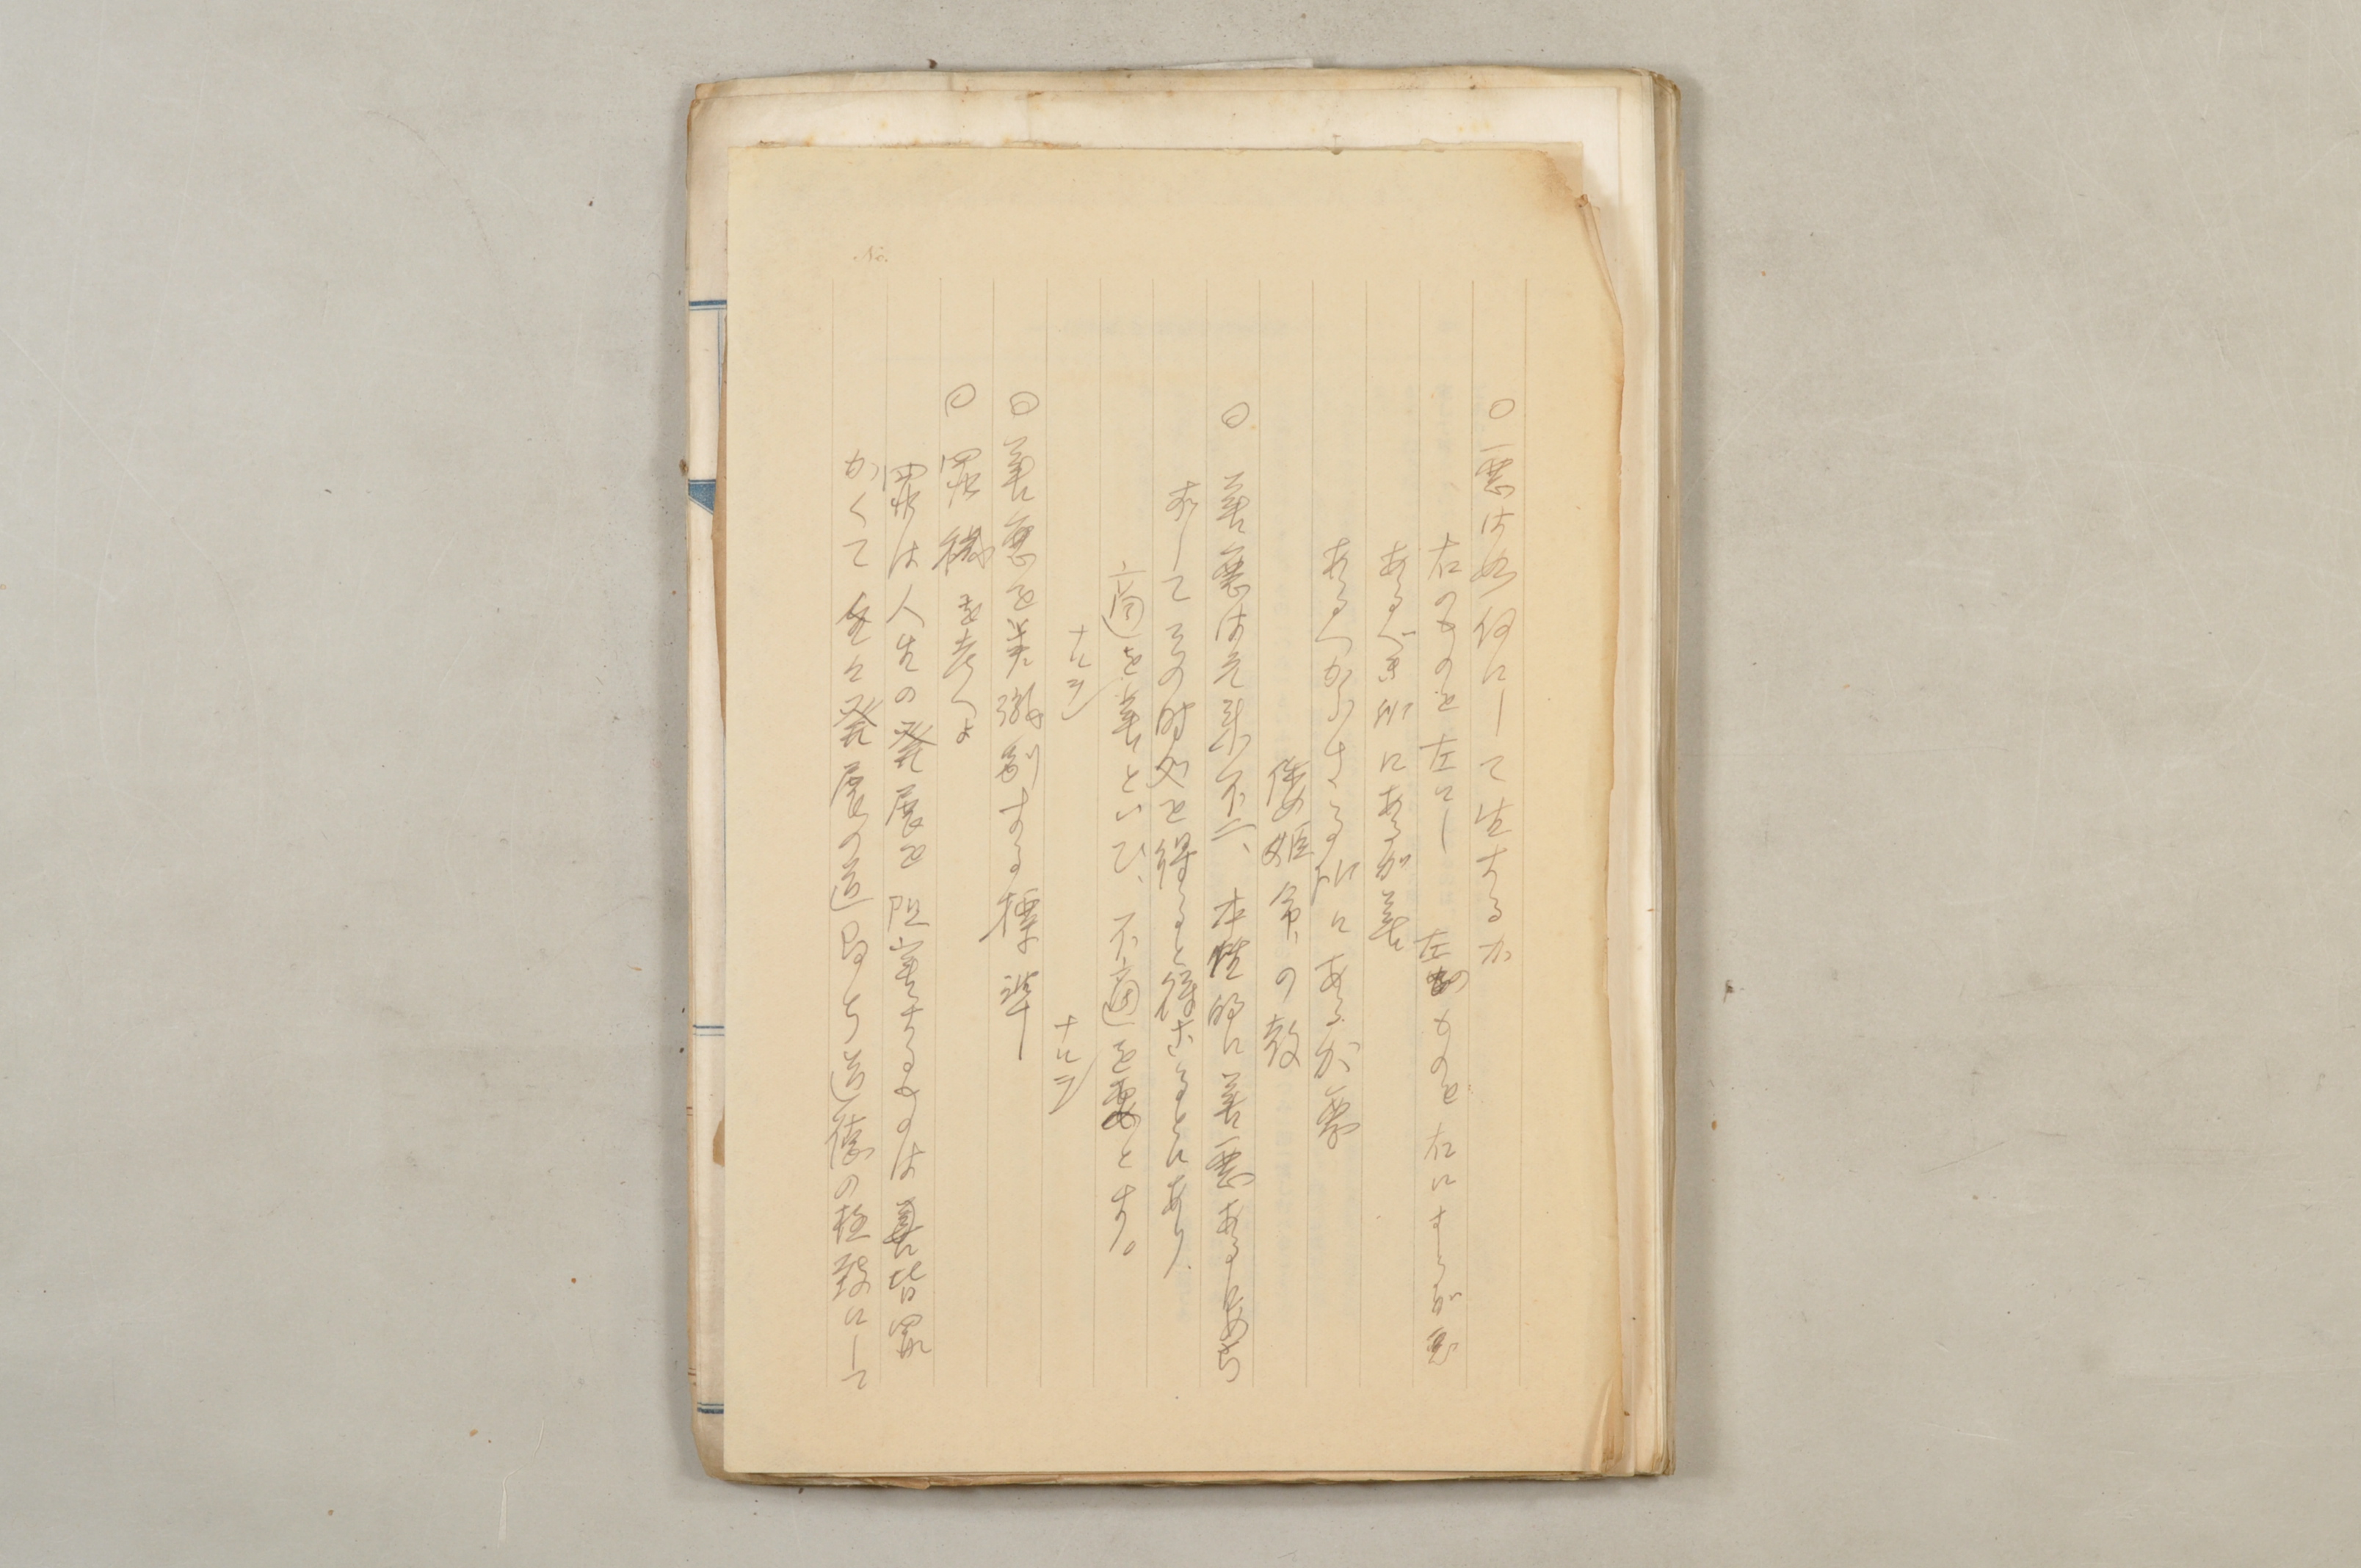 ○悪は如何にして生ずるか
右のものを左にし 左のものを右にするが悪
あるべき所にあるが善
あるべからざる所にあるが悪
倭姫命の教
○善悪は元来不二、本性的に善悪あるにあらず
して其の時処を得ると得ざるとにあり
適を善といひ、不適を悪とす。
ナニヲ ナニヲ
○善悪を美徴別する標準
○罪穢を考へよ
罪は人生の発展を阻害するものは皆罪
かくて生々発展の道即ち道徳の極致にして
No.